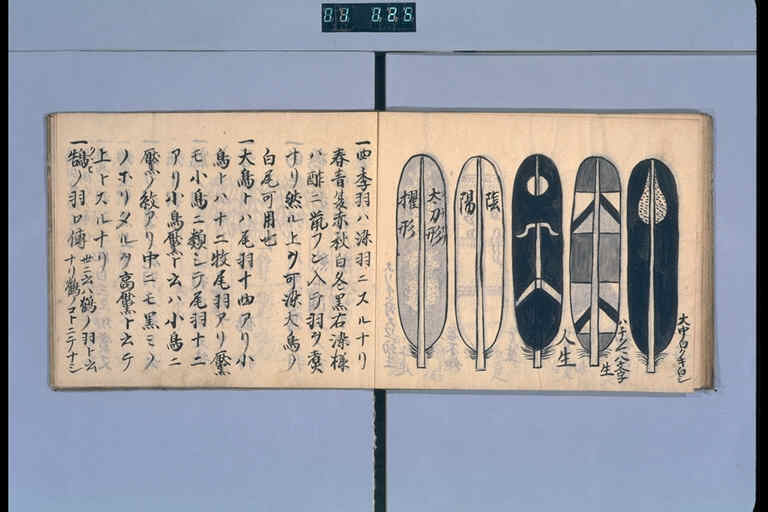 大中白クキ白シ
ハチクイハ文字
生
人生
陰
陽
太刀形
擢形
一四季羽ハ染羽ニスルナリ
春青夏赤秋白冬黒右染様
ハ酢ニ
入テ羽ヲ煮
ナリ然ル上ヲ可染大鳥ノ
白尾可用也
一大鳥トハ尾羽十四アリ小
鳥トハ十二枚尾羽アリ鷹
モ小鳥ニ類シテ尾羽十二
アリ小鳥鷹ト云ハ小鳥ニ
鷹ノ紋アリ中ニモ黒ミノ
ノホリタルヲ高鷹ト云テ
上トスルナリ
一鵠ノ羽口傳
世ニ云ハ鶴ノ羽ト云
ナリ鶴ノコトニテナシ
01 026